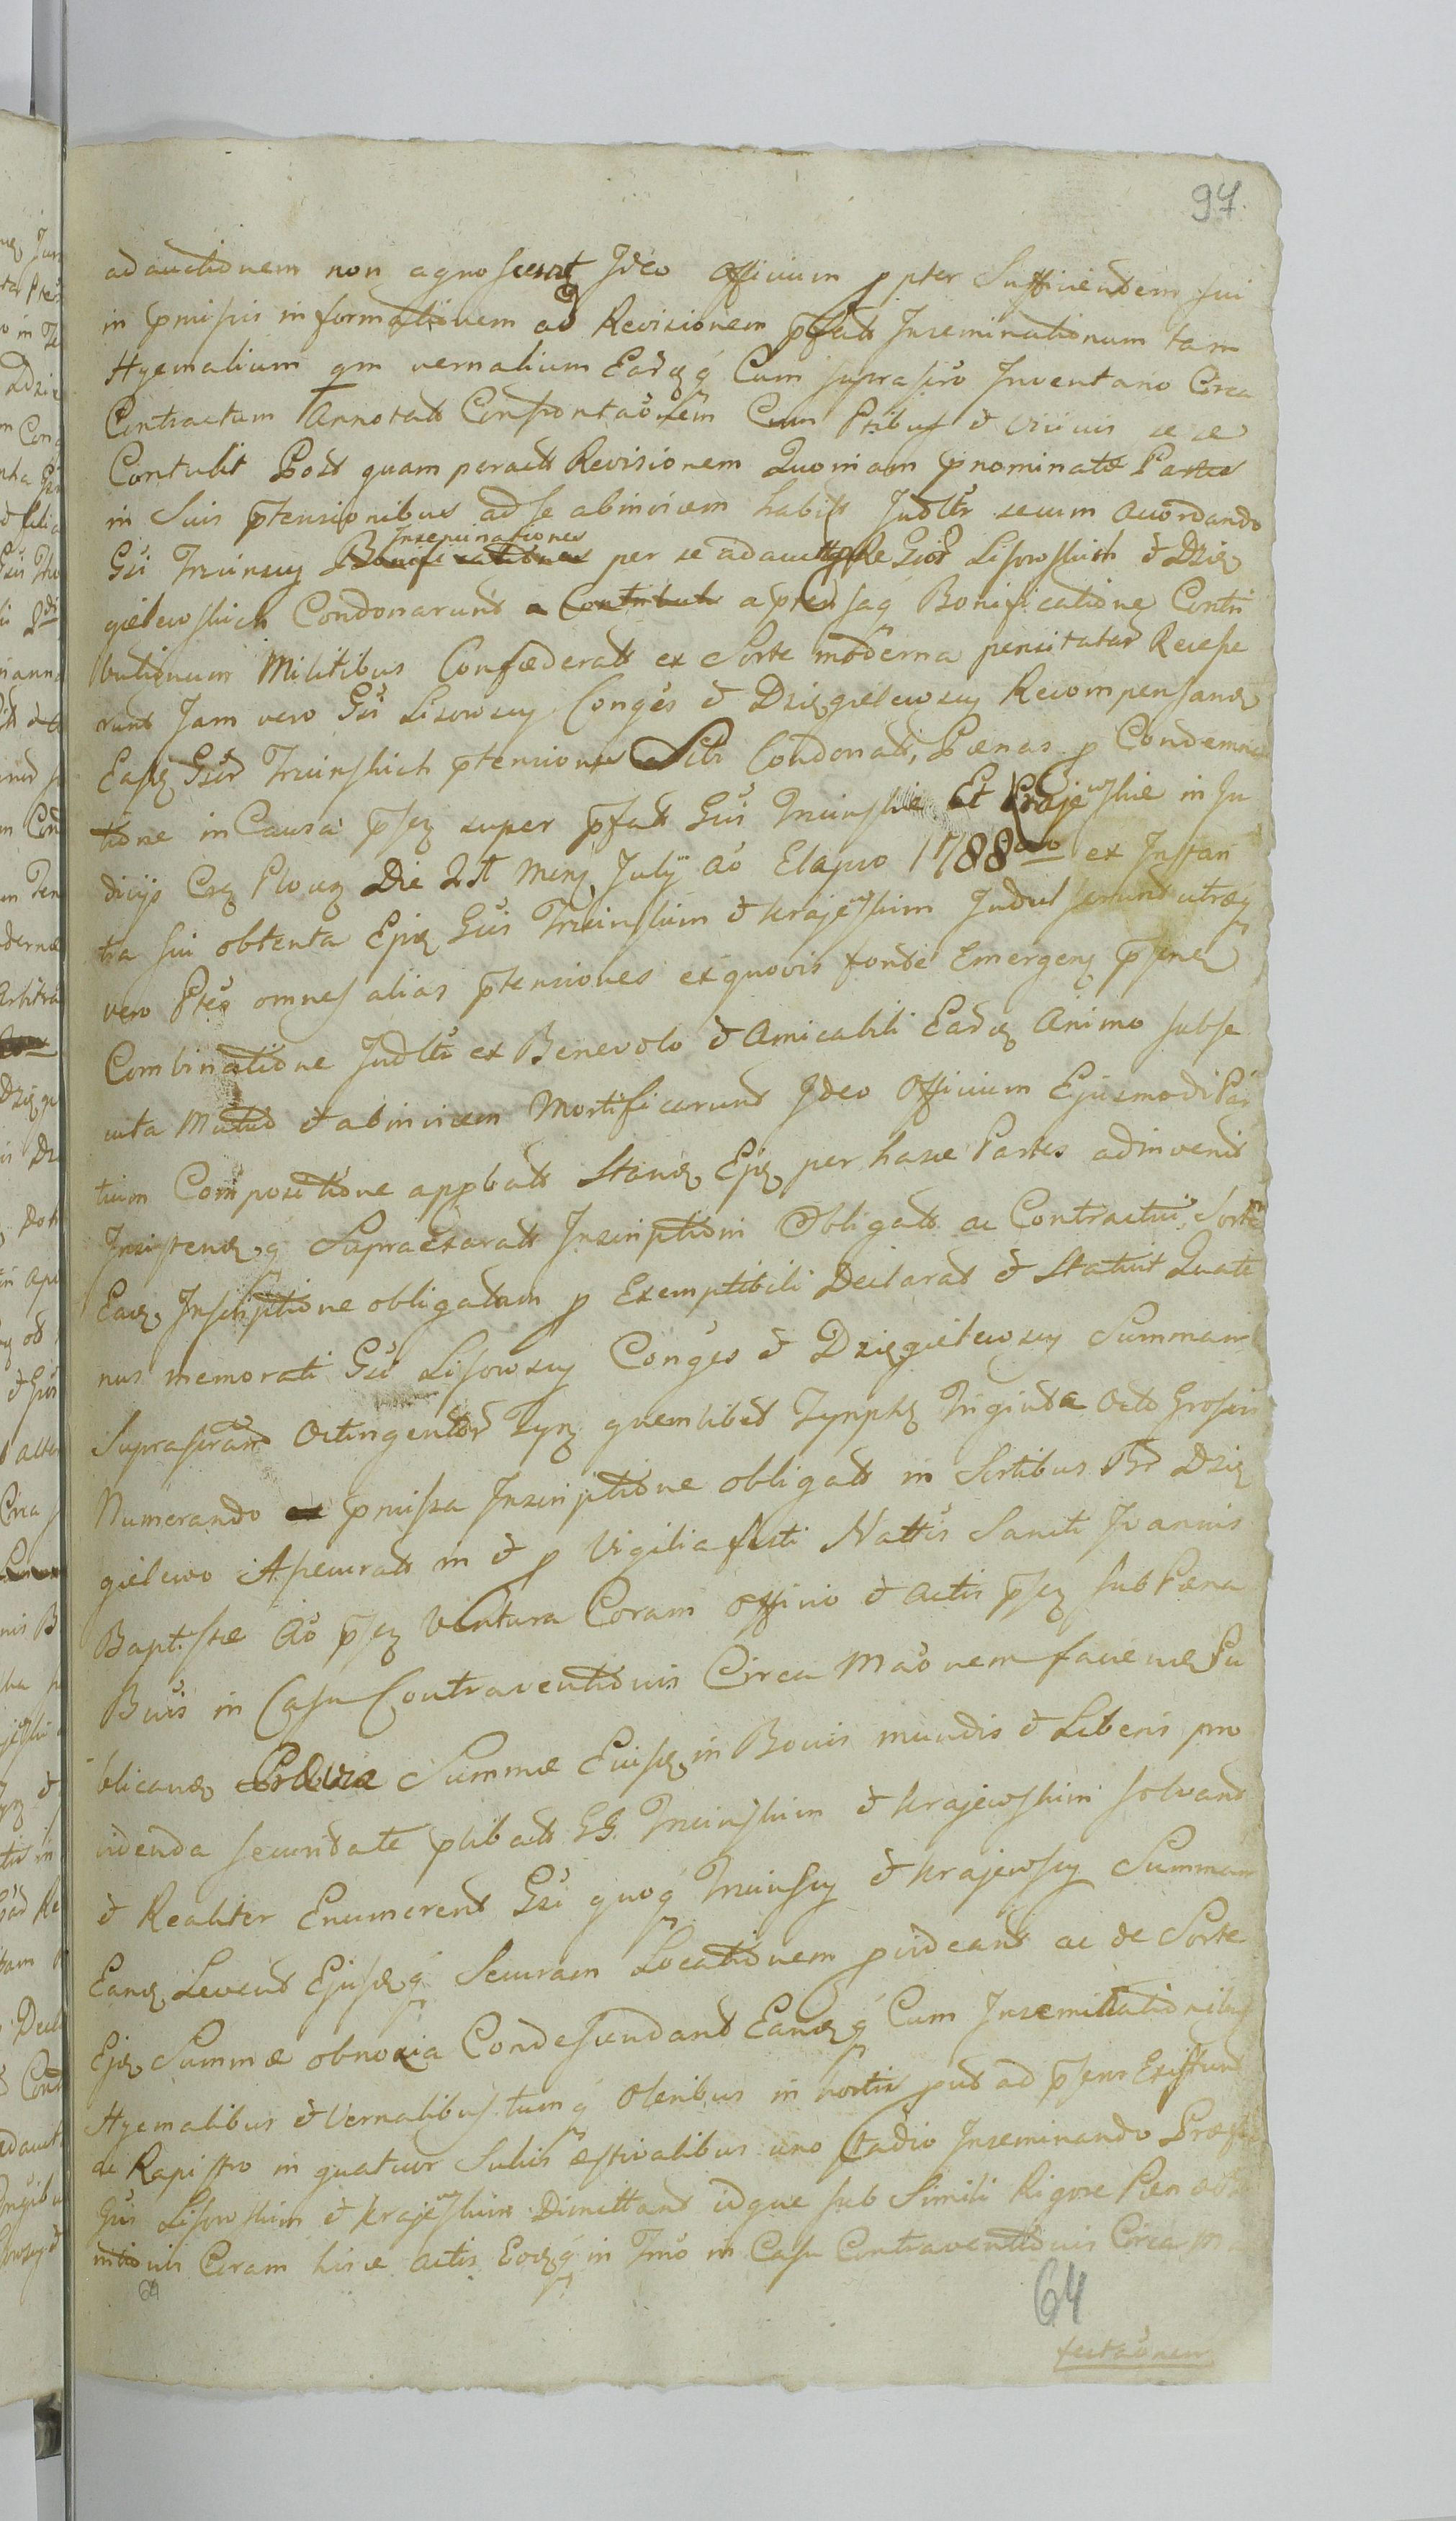 97.
ad auctionem non agnoscerent Ideo Officium ppter Sufficientem sui
in pmissis informationem ad Revisionem pfatt Inseminationum tam
Hyemalium qm vernalium Earzq Cum suprascro Inventario Circa
Contractum Annotatt Confrontaonem Cum Ptibus et vicinis se se
Contulit Post quam peractt Revisionem Quoniam pnominatæ Partes
in Suis ptensionibus ad se abinvicem habitt Judltr secum accordando
Gsi Trzinscy Inseminationes per se adauctt Gsor Lisowskich et Dzię
gielewskich Condonarunt a Bonificatione Contri
butionum Militibus Confæderatt ex Sorte moderna pensitatar Recesse
runt Jam vero Gsi Lisowscy Conges et Dzięgielewscy Recompensand
Easd Gsor Trzinskich ptensiones Sibi Condonatt, Pænas p Condemna
tione in Causa psq super pfatt Gsis Trzinskie Et Krajewskie in Ju
dicijs Cas Plocen Die 21 Mens July Ao Elapso 1788vo ex Instan
tia sui obtenta Ejsd Gsis Trzinskim et Krajewskim Indulserunt utræq
vero Ptes omnes alias ptensiones ex quovis fonte Emergen psente
Combinatione Judltr ex Benevolo et Amicabili Eard Animo subse
cuta Mutuo et abinvicem Mortificarunt Ideo Officium Ejusmodi Par
tium Compositione appbatt Stand Ejs per hasce Partes adinvenit
Insistendq Supraexaratt Inscriptioni Obligatt ac Contractui, Sortem
Eand Inscriptione obligatam p Exemptibili Declarat et Statuit Quate
nus memorati Gsi Lisowscy Conges et Dzięgielewscy Summam
Suprascram Octingentor Tynf quemlibet Tynphum Triginta Octo Grossis
Numerando pmissa Inscriptione obligatt in Sortibus Br Dzię
gielewo Assecuratt in et p Vigilia festi Nattis Sancti Joannis
Baptistæ Ao psq Ventura Coram Officio et Actis psq sub Pæna
Bnis in Casu Contraventionis Circa Maonem facienda Pu
blicand Summæ Ejusd in Bonis mundis et Liberis pro
videnda securitate plibatt GG. Trzinskim et Krajewskim solvant
et Realiter Enumerent Gsi quoq Trzinscy et Krajewscy Summam
Eand Levent Ejusdq Securam Locationem pvideant ac de Sorte
Ejs Summæ obnoxia Condescendant Eandq Cum Inseminationibus
Hyemalibus et Vernalibus tumq Oleribus in hortis put ad psens Existunt
ac Rapistro in quatuor Sulcis æstivalibus uno stadio Inseminando Præfatt
Gsis Lisowskim et Krajewskim Dimittant idque sub Simili Rigore Pæn
Coram hisce actis Eodq in Tmo in Casu Contraventionis Circa M
64
64
festaonem